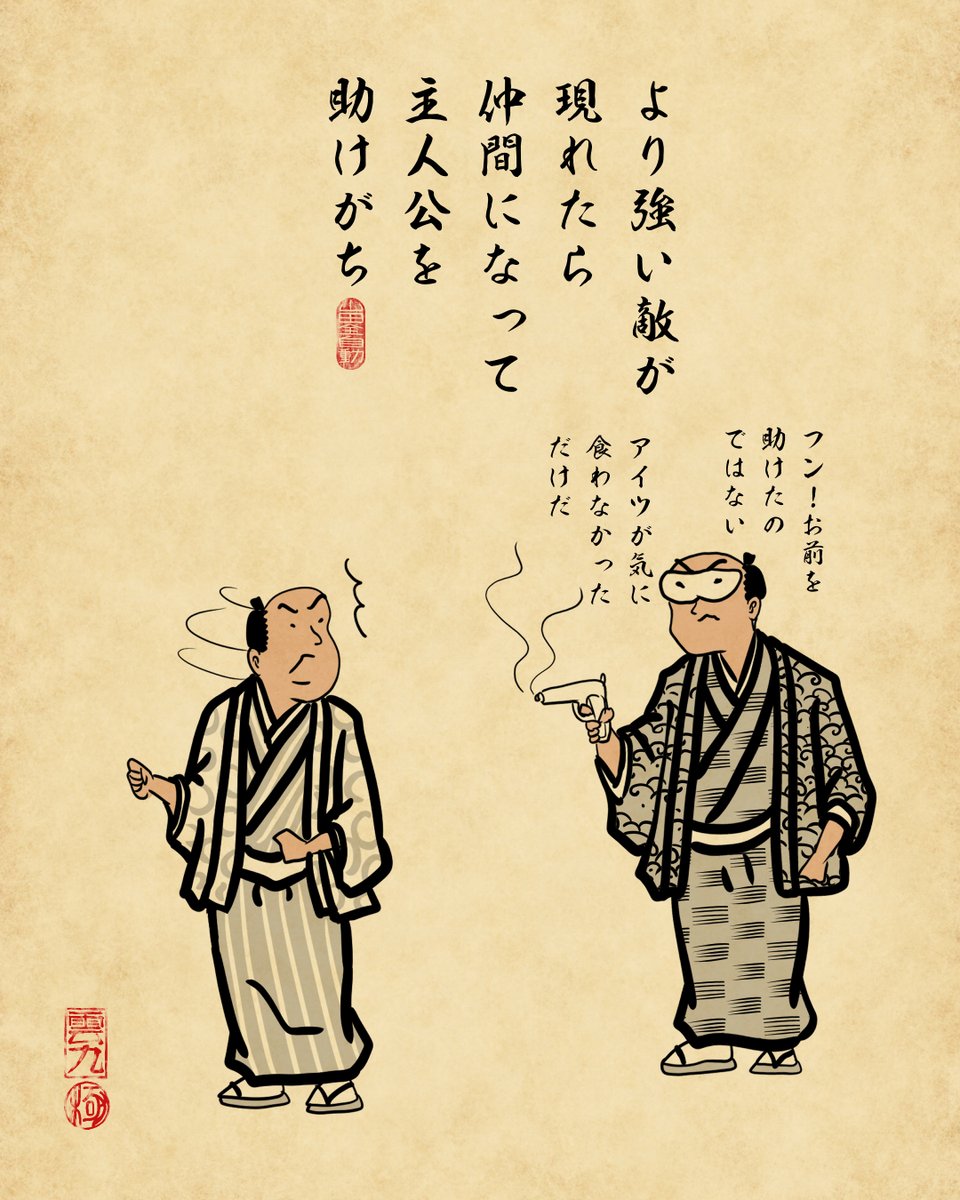 より強い敵が
現れたら
仲間になって
主人公を
助けがち
フン！お前を
助けたの
ではない
アイツが気に
食わなかった
だけだ